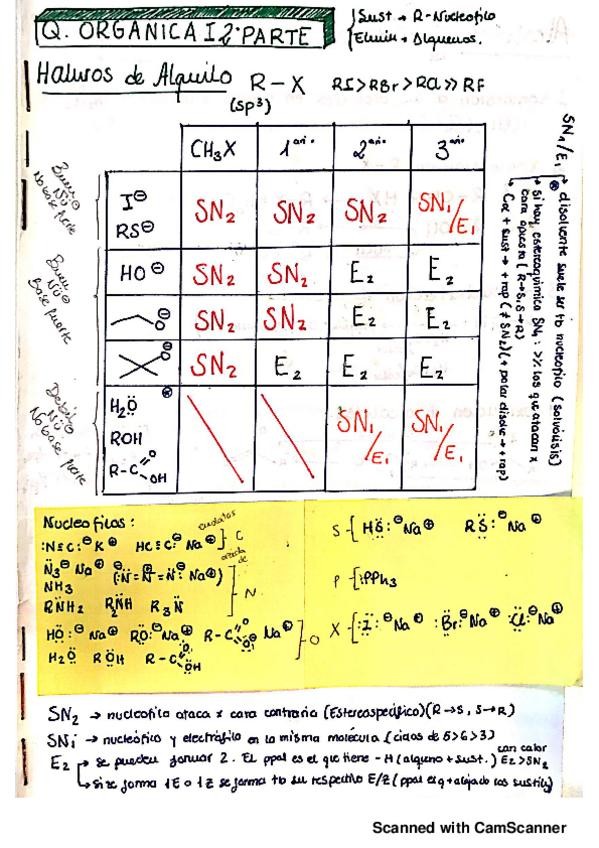 Q. ORGANICA I 2ª PARTE
Sust → R-Nucleofilo
Elimin → Alquenos.
Haluros de Alquilo R-X RI>RBr>RCl>>RF
(sp³)
CH₃X 1ario 2ario 3ario
Buen Nü No base fuerte
I⊖ SN₂ SN₂ SN₂ SN₁/E₁
RS⊖
Buen Nü Base fuerte
HO⊖ SN₂ SN₂ E₂ E₂
O⊖ SN₂ SN₂ E₂ E₂
O⊖ SN₂ E₂ E₂ E₂
Debil Nü No base fuerte
H₂Ö SN₁/E₁ SN₁/E₁
ROH
R-C=O OH
SN₁/E₁ → disolvente suele ser tb nucleofilo (solvólisis)
si hay estereoquímica SN₁: >% los que atacan x
cara opuesta (R→S, S→R)
C⊕ + sust → + rap (≠ SN₂) (+ polar disolv → + rap)
Nucleofilos:
:N≡C:⊖ K⊕ HC≡C:⊖ Na⊕ } C
N₃⊖ Na⊕ (⊖:N=N=N:⊖ Na⊕)
NH₃
RNH₂ R₂NH R₃N } N
HO:⊖ Na⊕ RO:⊖ Na⊕ R-C=O O:⊖ Na⊕ } O
H₂O ROH R-C=O OH
S { HS:⊖ Na⊕ RS:⊖ Na⊕
P { :PPh₃
X { :I:⊖ Na⊕ :Br:⊖ Na⊕ :Cl:⊖ Na⊕
SN₂ → nucleofilo ataca x cara contraria (Estereoespecífico) (R→S, S→R)
SNi → nucleófilo y electrófilo en la misma molécula (ciclos de 5>6>3)
con calor
E₂ → se pueden formar 2. El ppal es el que tiene -H (alqueno + sust.) E₂>SN₂
→ si se forma 1E o 1Z se forma tb su respectivo E/Z (ppal el q + alejado los sustit)
Scanned with CamScanner